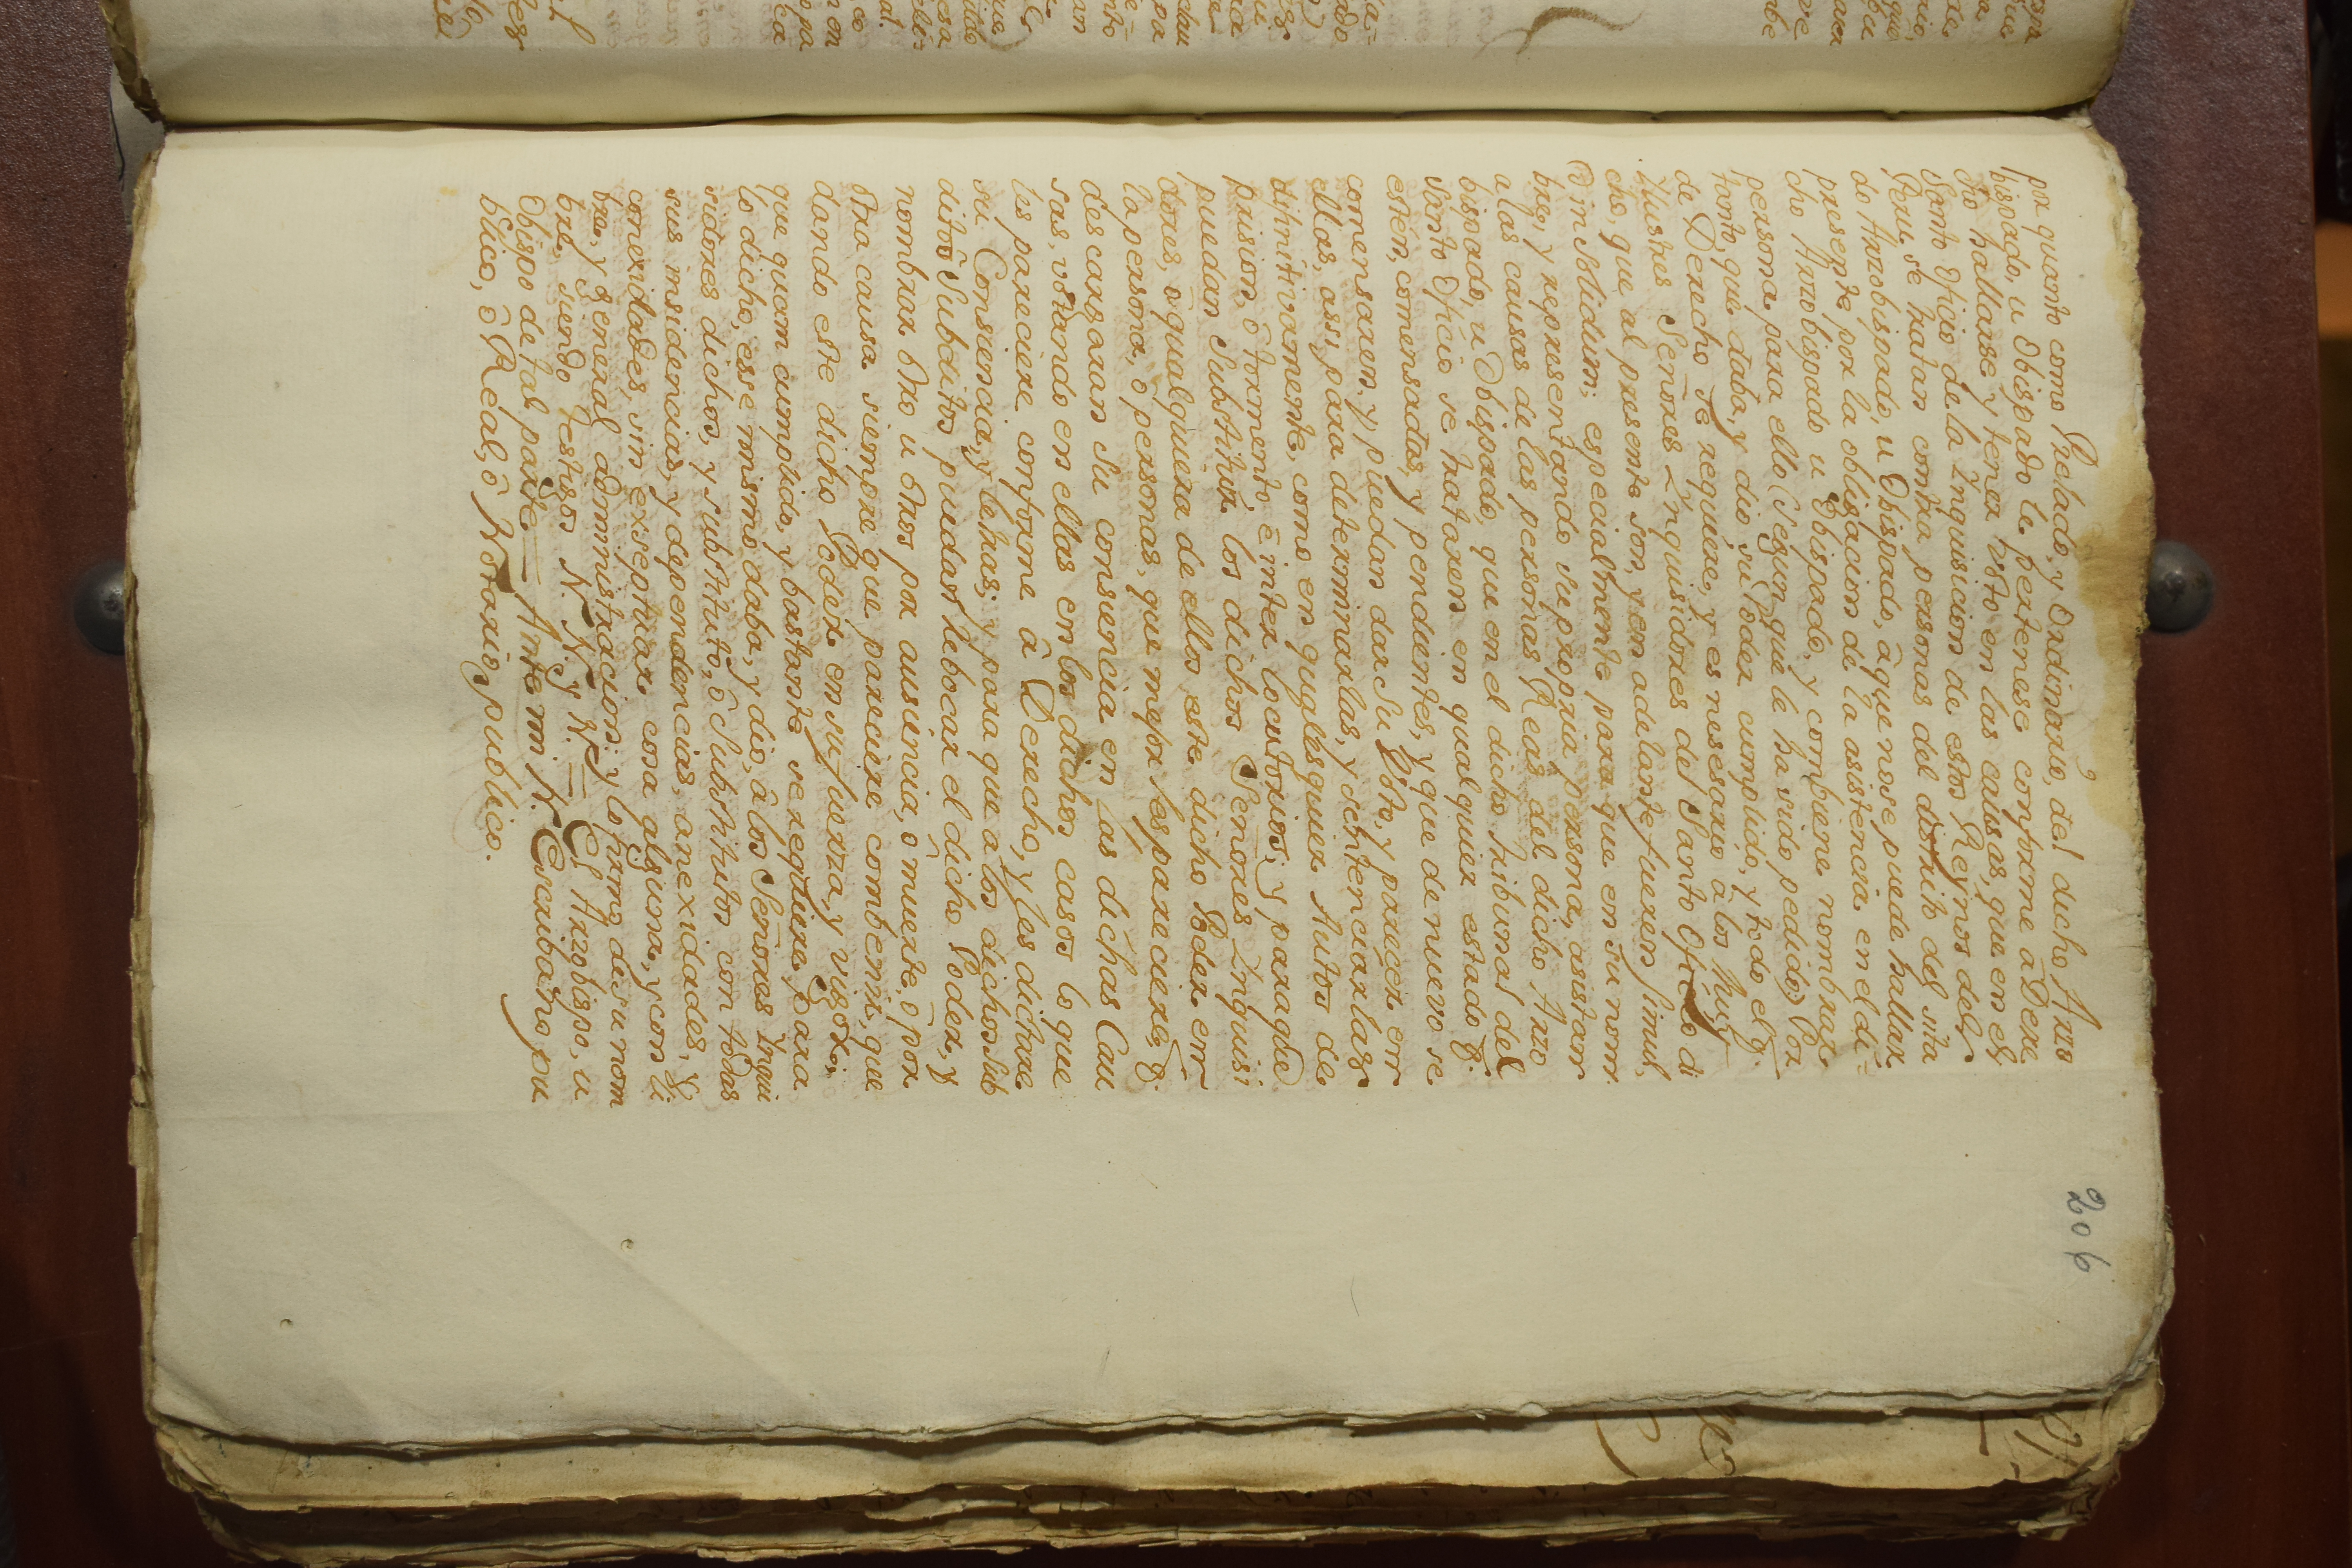 206
por quanto como Prelado, y Ordinario, del dicho Arzo
bispado, u Obispado le pertenese conforme â Dere
cho hallarse y tener Voto en las causas, que en el
Santo Oficio de la Inquisicion de estos Reynos del
Peru, se tratan contra personas del distrito del sita
do Arzobispado, u Obispado, â que no se puede hallar
presente por la obligacion de la asistencia en el di=
cho Arzobispado u Obispado, y combiene nombrar
persona para ello (segun que le ha sido pedido) Por
tanto, que daba, y dio su Poder cumplido, y todo el q.
de Derecho se requiere, y es nesesario a los Muy
Ilustres Señores Inquisidores del Santo Oficio di
cho, que al presente son, y en adelante fueren simul,
et in solidum; especialmente para que en su nom
bre, y representando su propria persona, asistan
a las causas de las personas Reas del dicho Arzo
bispado, u Obispado, que en el dicho tribunal del
Santo Oficio se trataren en qual quier estado q.
estén, comensadas, y pendientes, y que de nuevo se
comensaren, y puedan dar su Voto, y parecer en
ellas, assi para determinarlas, y sentenciarlas
difinitivamente, como en qualesquier Autos de
prision, ô tormento, ê inter locutorios; y para que
puedan Substituir los dichos Señores Inquisi
dores, o qualquiera de ellos este dicho Poder en
la persona, o personas, que mejor les pareciere, q.
descargaran su consiencia en las dichas Cau
sas, votando en ellas en los dichos casos lo que
les pareciere conforme â Derecho, y les dictare
su Consiencia, y letras; y para que a los dichos Sub
ditos Substitutos puedan rebocar el dicho Poder, y
nombrar otro u otros por ausencia, o muerte, ô por
otra causa siempre que pareciere combenir, que
dando este dicho Poder en su fuerza, y vigor;
que quam cumplido, y bastante se requiere para
lo dicho, esse mismo daba, y dio, â los Señores Inqui
sidores dichos, y substituto, ô Substitutos con todas
sus insidencias, y dependencias, anexidades, y
conexidades, sin exseptuar cosa alguna, y con li
bre, y general administracion: y lo firmo de su nom
bre, siendo Testigos N. N. y N. = El Arzobispo, u
Obispo de tal parte = Ante mi N. Escribano pu
blico, ô Real, ô Notario publico.